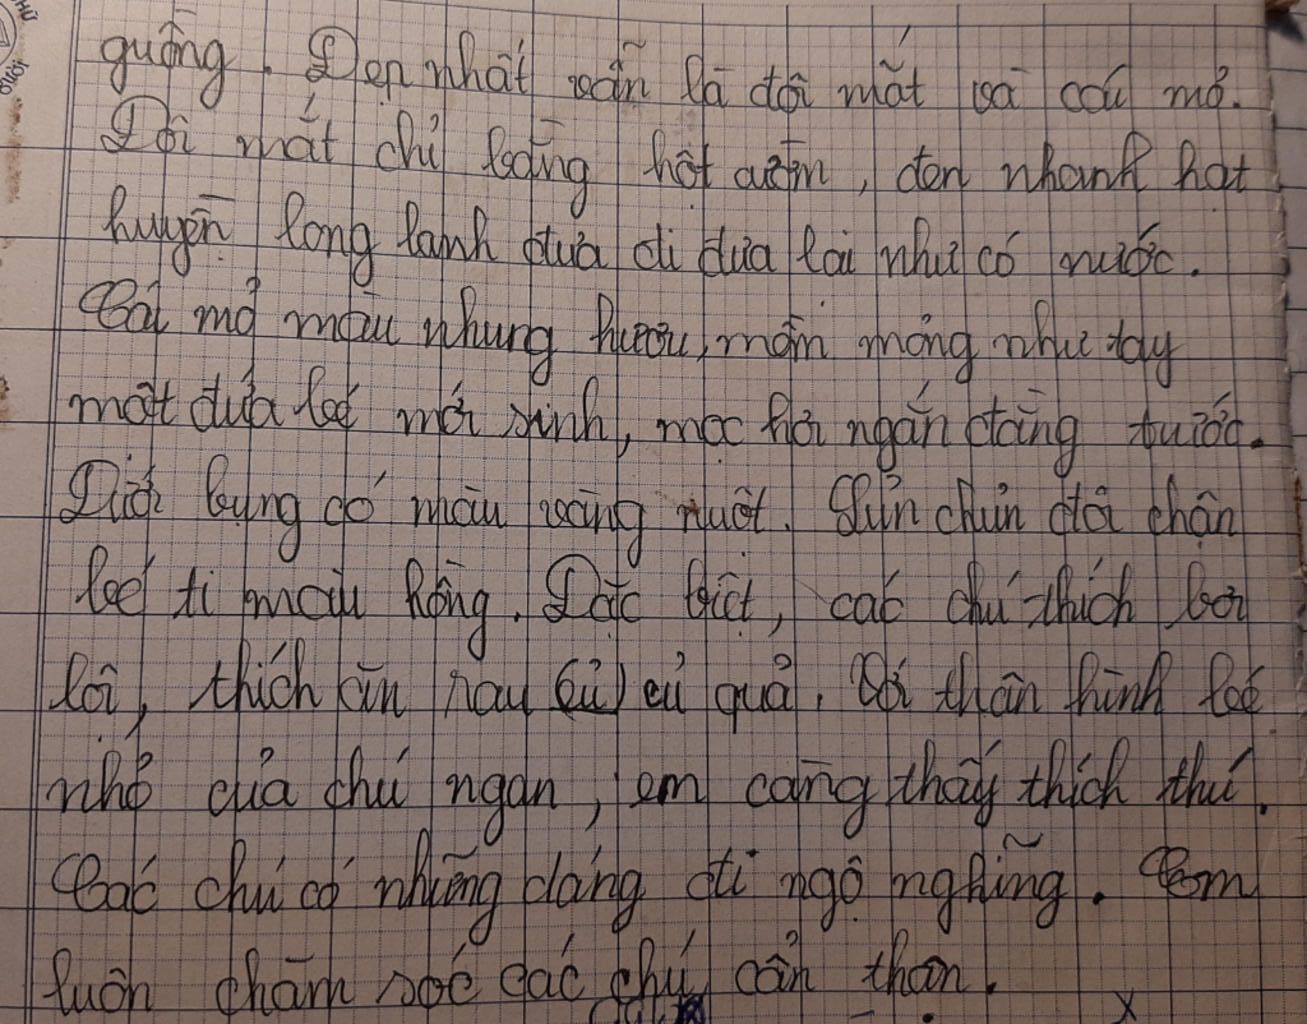 guồng. Đẹp nhất vẫn là đôi mắt và cái mỏ.
Đôi mắt chỉ bằng hột cườm, đen nhánh hạt
huyền long lanh đưa đi đưa lại như có nước.
Cái mỏ màu nhung hươu, mềm mỏng như tay
một đứa bé mới sinh, mọc hơi ngắn đằng trước.
Dưới bụng có màu vàng nuột. Lũn chũn đôi chân
bé tí màu hồng. Đặc biệt, các chú thích bơi
lội, thích ăn rau (củ) củ quả. Với thân hình bé
nhỏ của chú ngan, em càng thấy thích thú.
Các chú có những dáng đi ngộ nghĩnh. Em
luôn chăm sóc các chú cẩn thận.